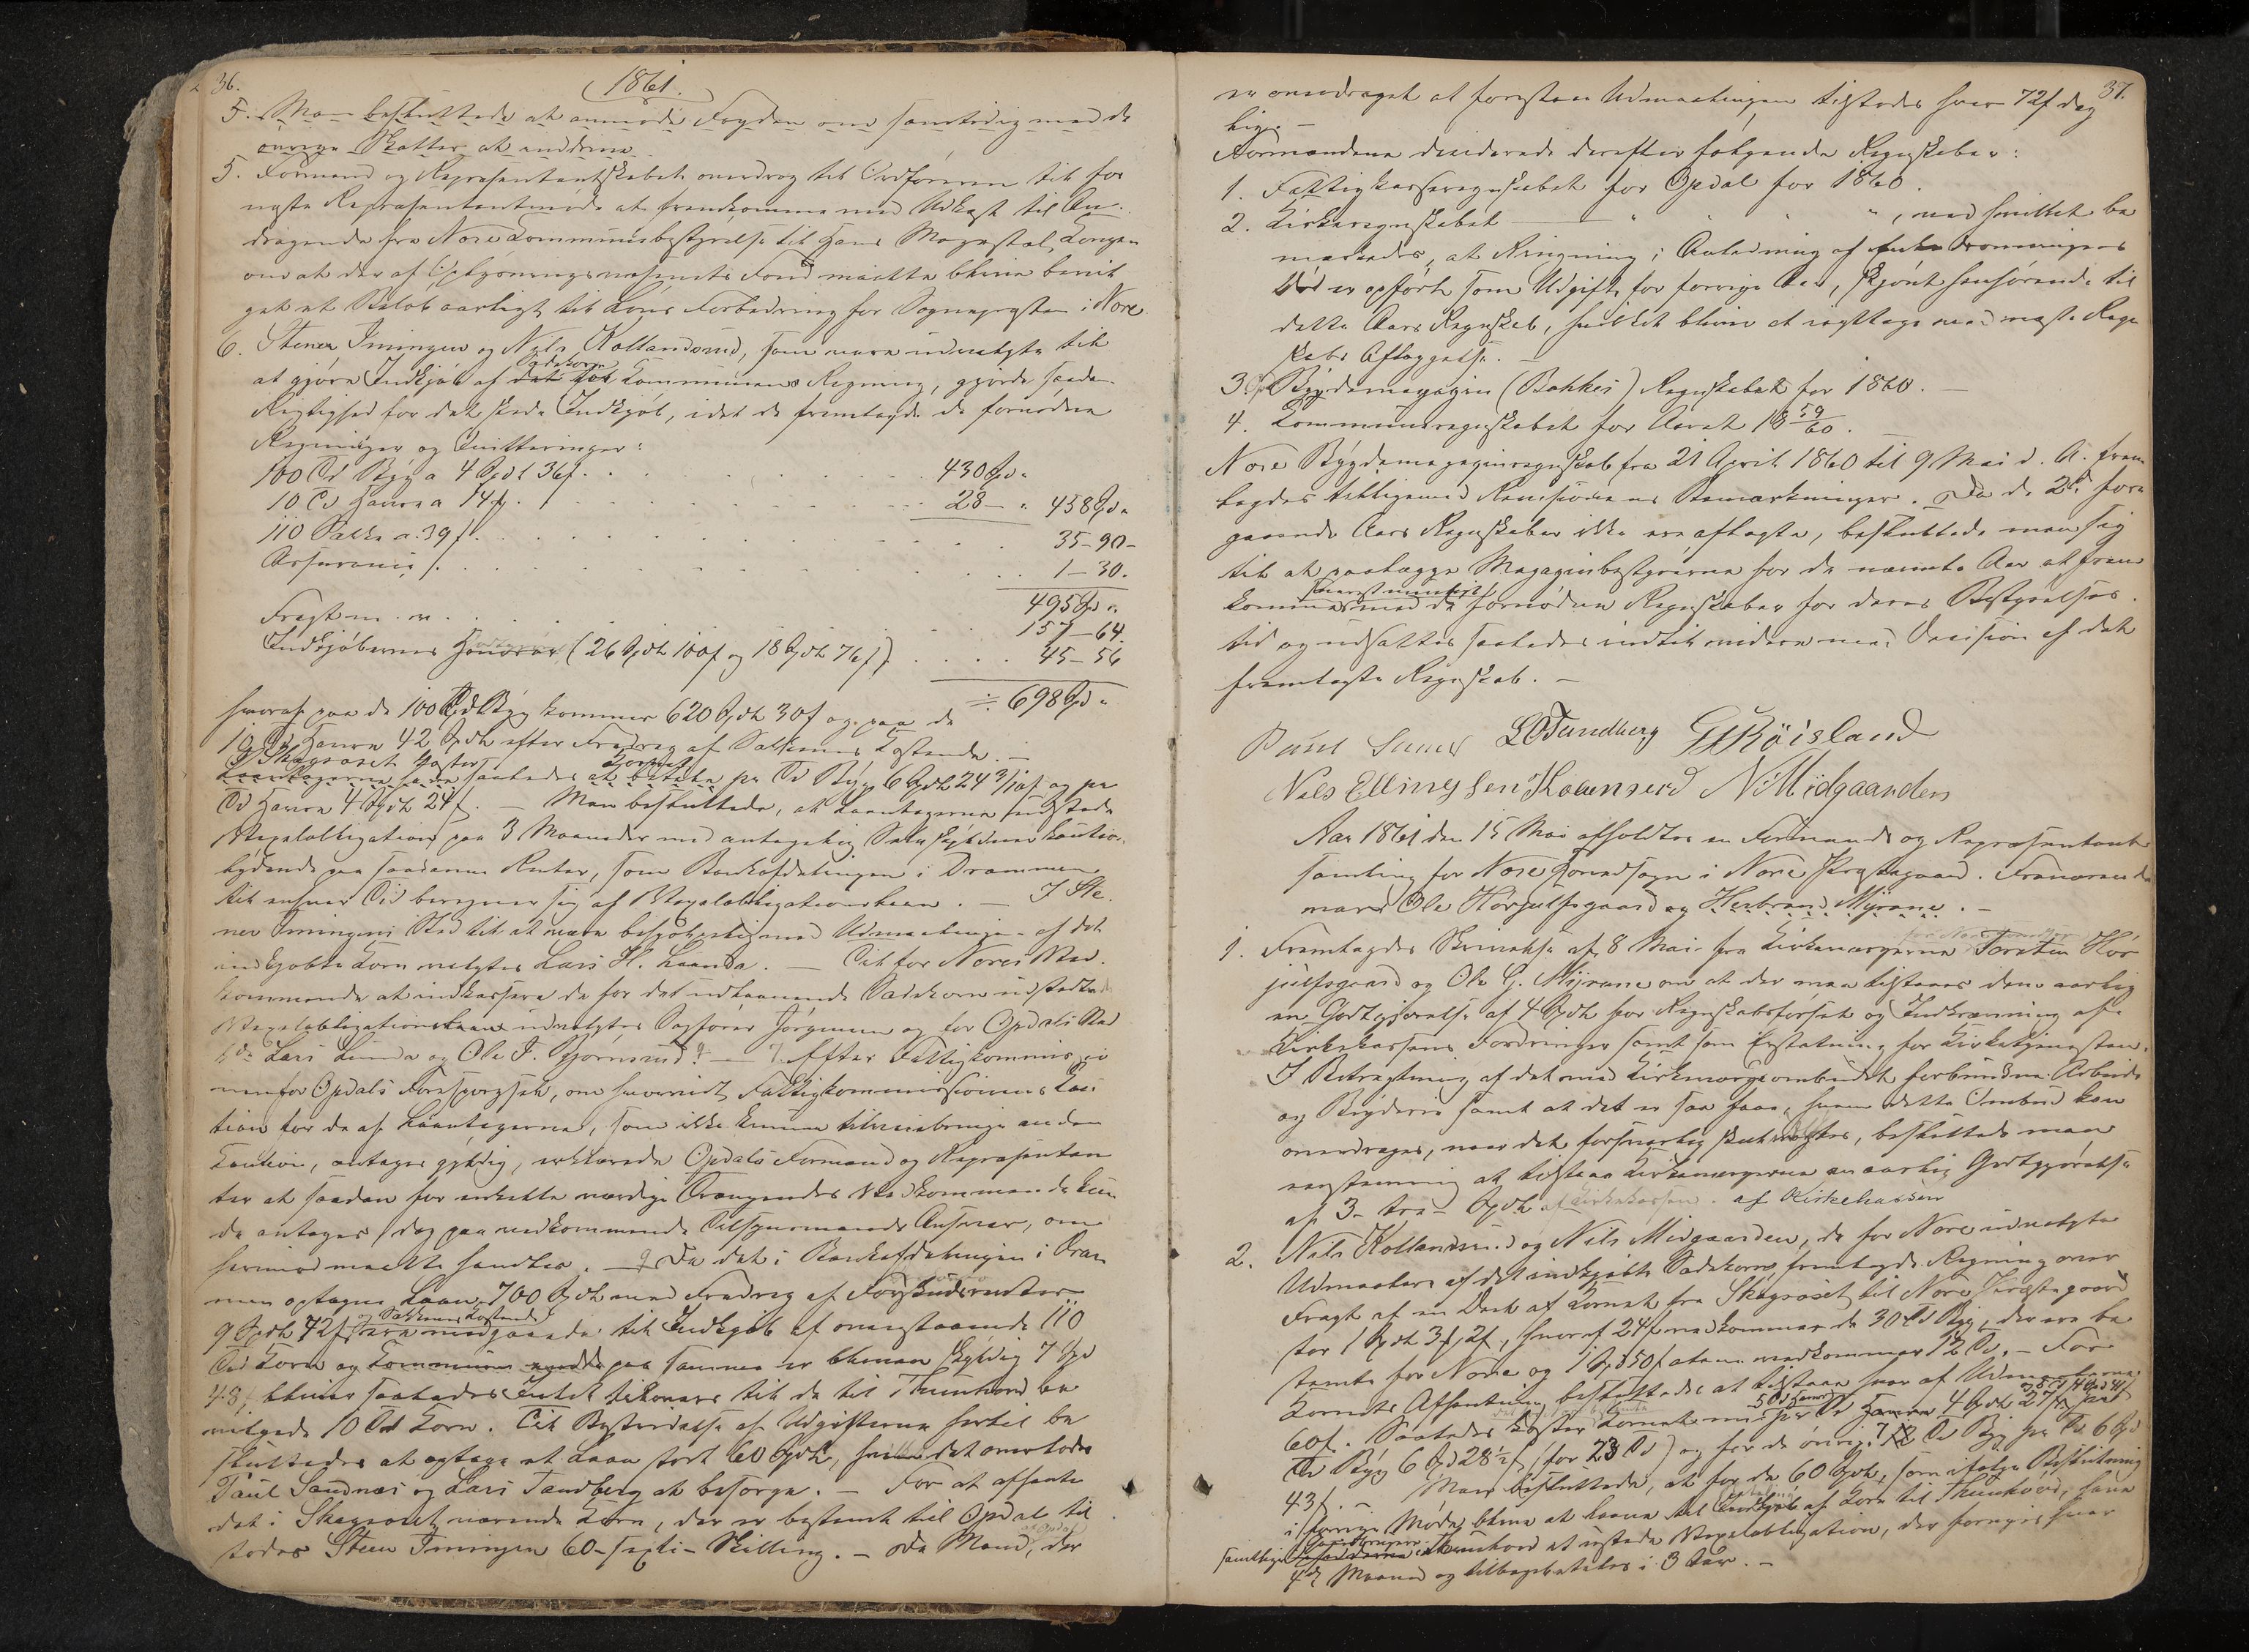 36.
1861.
5. Man besluttede at anmode Fogden om samtidig med de
øvrige Skatter at inddrive
5. Formand og Repræsentantskabet overdrog til Ordføreren til for
neste Repræsentantmøde at fremkomme med Udkast til An-
dragende fra Nore Kommunebestyrelse til Hans Majestæt Kongen
om at der af Oplysningsvæsenets Fond maatte blive bevil
get et Beløb aarligt til Løns Forbedring for Sognepresten i Nore
6. Stener Imingen og Nels Kollandsrud, som vare udvalgte til
at gjøre Indkjøb af Sædekorn for Kommunens Regning, gjorde saadan
Rigtighed for det skede Indkjøb, idet de fremlagde de fornødne
Regninger og Qvitteringer:
100 Td Byg a 4 Spdl 36 s. . . 430 Spd "
10 Td Havre a 14 . . . 28 - " 458 Spd "
110 Sække a 39 s. . . 35-90-
Assurance . . . 1-30.
495 Spd "
Fragt m. v. . . . 157-64.
Indkjøbernes Honorar (26 Spdl 100 s og 18 Spdl 76 s) . . . 45-56
÷ 698 Spd "
hvoraf paa de 100 Td Byg kommer 620 Spdl 30 s og paa de
10 Td Havre 42 Spdl efter Fradrag af Sækkenes Kostende. -
I Skagsoset koster
Laantagerne have saaledes Kornet at betale pr Td Byg 6 Spdl 24 3/10 s og pr
Td Havre 4 Spdl 24 s. - Man besluttede, at Laantagerne udstede
Vexelobligation paa 3 Maaneder med antagelig Selvskyldner Kaution
lydende paa saadanne Renter, som Bankafdelingen i Drammen
til enhver Tid beregner sig af Vexelobligationslaan. - I Ste
ner Imingens Sted til at være behjælpelig med Udmaalingen af det
indkjøbte Korn valgtes Lars H. Laanda. - Til for Nores Ved
kommende at indkassere de for det udlaanende Sædekorn udstedte
Vexelobligationslaan udvalgtes Sagfører Jørgensen og for Opdals Ved
k: Lars Lunda og Ole T. Bjørnsrud. - 7. Efter Fattigkommissio
nen for Opdals Forespørgsel, om hvorvidt Fattigkommissionens Kau
tion for de af Laantagerne, som ikke kunne tilveiebringe anden
Kaution, antages gyldig, erklærede Opdals Formand og Repræsentan
ter at saadan for enkelte værdige Trængendes Vedkommende kun
de antages dog paa vedkommende Tilsynsmands Ansvar, om
herimod maatte handles. - Da det i Bankafdelingen i Dram
men optagne Laan, 700 Spdl med Fradrag af Forskudsrenter
og Sækkenes Kostende
9 Spdl 42 s ere medgaaede til Indkjøb af ovenstaaende 110
Tdr Korn og Kommunen paa samme er bleven skyldig 7 Spd
48 s bliver saaledes Intet tilovers til de til Thunhovd be
vilgede 10 Td Korn. Til Bestridelse af Udgifterne hertil be
sluttedes at optage et Laan stort 60 Spdl, hvilket det overlodes
Paul Sandnæs og Lars Tandberg at besørge. - For at afhente
det i Skagsoset værende Korn, der er bestemt til Opdal til
stodes Steen Imingen 60-sexti-Skilling. - De Mænd, der i Opdal
37.
er overdraget at forestaa Udmaalingen tilstodes hver 72 s dag
lig. -
Formændene deciderede derefter følgende Regnskaber:
1. Fattigkasseregnskabet for Opdal for 1860.
2. Kirkeregnskabet — " " " , ved hvilket be
mærkedes, at Ringning i Anledning af Enkedronningens
Død er opført som Udgift for forrige Aar, skjønt henhørende til
dette Aars Regnskab, hvilket bliver at iagttage ved neste Regn
skabs Aflæggelse. -
3. Bygdemagazin (Bakkes) Regnskabet for 1860.
4. Kommuneregnskabet for Aaret 18 59/60.
Nore Bygdemagazinregnskab fra 21 April 1860 til 9 Mai d. A. frem
lagdes tilligemed Revisionens Bemærkninger. Da de 2de fore
gaaende Aars Regnskaber ikke ere aflagte, besluttede man sig
til at paalægge Magazinbestyrerne for de nævnte Aar at frem
komme snarest muligt med de fornødne Regnskaber for deres Bestyrelses
tid og udsattes saaledes indtil videre med Decision af det
fremlagte Regnskab. -
LOTandberg GKRöisland
Nels Ellingsen Kollensrud N Midgaarden
Aar 1861 den 15 Mai afholdtes en Formands og Repræsentant
samling for Nore Hovedsogn i Nore Præstegaard. Fraværende
vare Ole Hørjulfsgaard og Herbrand Myrane. -
1. Fremlagdes Skrivelse af 8 Mai fra Kirkeværgerne for Nore Torsten Hør
julfsgaard og Ole G. Myrane om at der maa tilstaaes dem aarlig
en Godtgjørelse af 4 Spdl for Regnskabsførsel og Indkrævning af
Kirkekassens Fordringer samt som Erstatning for Kirketjenesten.
I Betragtning af det med Kirkeværgeombudet forbundne Arbeide
og Byrderne samt at det er saa faa, hvem dette Ombud kan
overdrages, naar det forsvarlig skal røgtes, besluttede man
eenstemmig at tilstaa Kirkeværgerne en aarlig Godtgjørelse
af 3- tre- Spdl af Kirkekassen. af Kirkekassen
2. Nils Kollandsrud og Nils Midgaarden, de for Nore udvalgte
Udmaalere af det indkjøbte Sædekorn, fremlagde Regning over
Fragt af en Deel af Kornet fra Skagsoset til Nore Præstegaard
stor 1 Spdl 3 s, hvoraf 24 s vedkommer de 30 Td Byg, der ere be
stemte for Nore og 1 Spd 50 s alene vedkommer 12 Td. - For
Kornets Afhentning besluttedes at tilstaa hver af Udmaalerne
60 s. Saaledes koster Kornet nu 5 Td Havre pr Td Havre 4 Spdl 27 s pr
Td Byg 6 Spd 28 1/2 s (for 23 Td) og for de øvrige 7 Td Byg pr Td 6 Spd
43 s. - Man besluttede, at for de 60 Spdl, som ifølge Beslutning
i forrige Møde blev at laane til Indkjøb af Korn til Thunhovd, have
samtlige Gaardbrugere i Thunhovd at udstede Vexelobligation, der fornyes hver
4de Maaned og tilbagebetales i 3 Aar. -